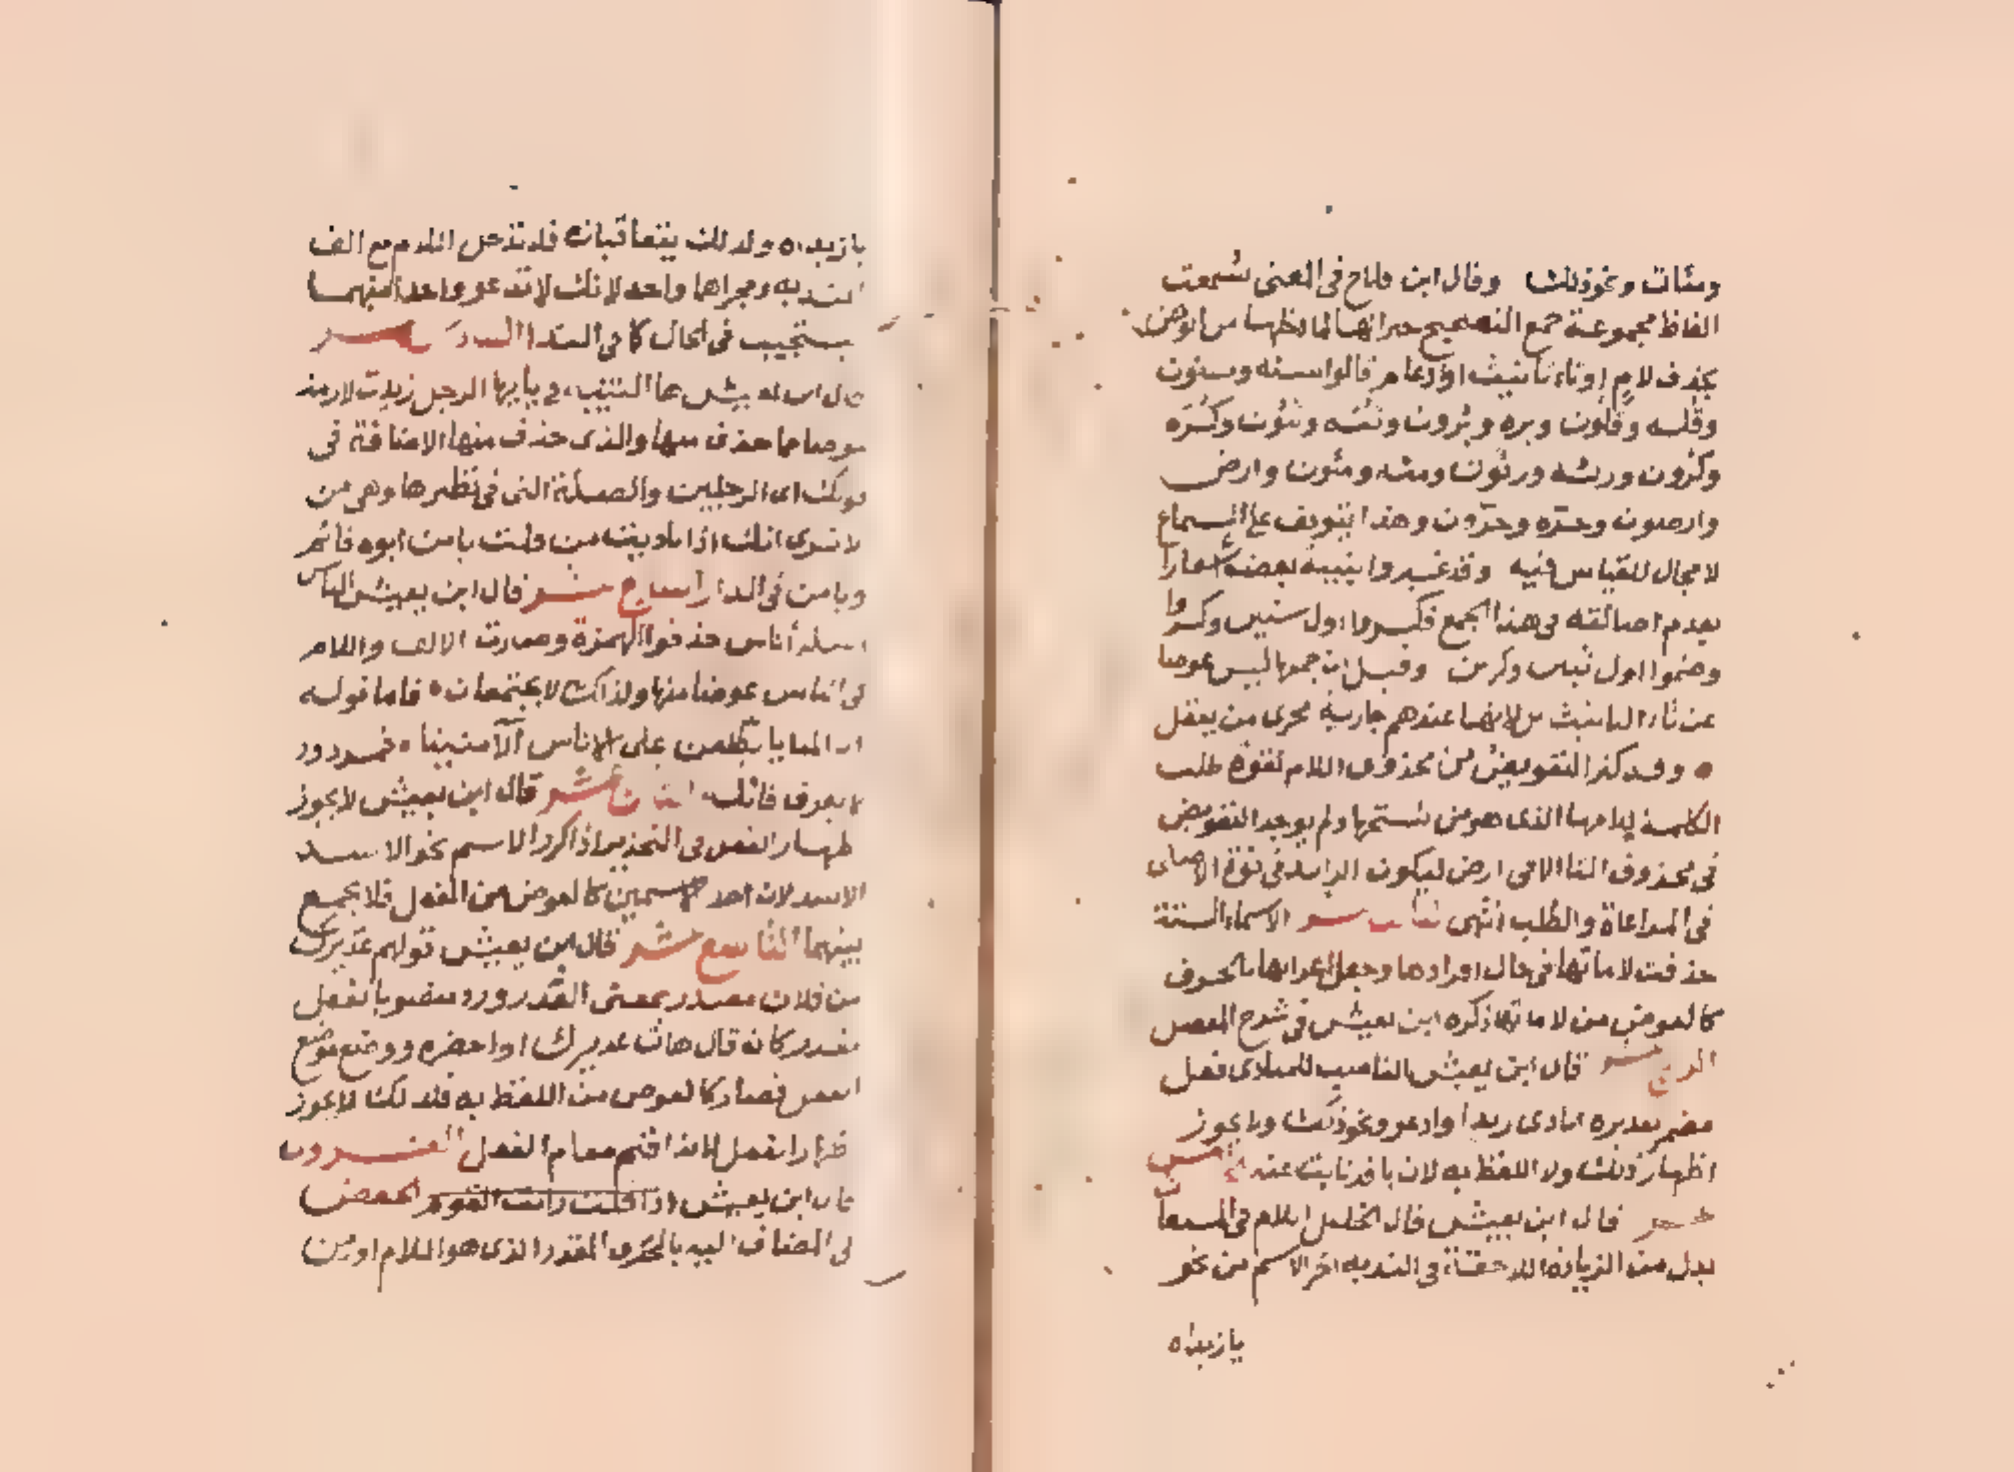 ومئات ونحو ذلك وقال ابن فلاح فى المغنى شيعت
الفاظ مجموعة جمع التصحيح جبرا لها لما لحقها من الوهن
بحذف لام او تاء تانيث او ادغام قالوا سنه وسنون
وقله وقلون وبره وبرون وثبه وثبون وكره
وكرون ورئه ورئون ومئه ومئون وارض
وارضون وحره وحرون وهذا يتوقف على السماع
لا مجال للقياس فيه وقد غيروا بنية بعضه اشعارا
بعدم اصالته فى هذا الجمع فكسروا اول سنين وكسروا
وضموا اول ثبين وكرين وقيل ان جمعها ليس عوضا
عن تاء التانيث لانها عندهم جارية مجرى من يعقل
وقد كثر التعويض من محذوف اللام لقوة طلب
الكلمة للامها الذى هو من سنخها ولم يوجد التعويض
فى محذوف التا الا فى ارض ليكون الزايد فى قوة الاصلى
فى المراعاة والطلب انتهى الثالث عشر الاسماء الستة
حذفت لاماتها فى حال افرادها وجعل اعرابها بالحروف
كالعوض من لاماتها ذكره ابن يعيش فى شرح المفصل
الرابع عشر قال ابن يعيش الناصب للمنادى فعل
مضمر تقديره انادى زيدا وادعو ونحو ذلك ولا يجوز
اظهار ذلك ولا اللفظ به لان يا قد نابت عنه الخامس
عشر قال ابن يعيش قال الخليل اللام فى المستغاث
بدل من الزيادة اللاحقة فى الندبه اخر الاسم من نحو
يا زيداه
يا زيداه ولذلك يتعاقبان فلا تدخل اللام مع الف
الندبه ومجراها واحد لانك لا تدعو واحدا منهما
يستجيب فى الحال كما فى الندا السادس عشر
قال ابن يعيش ها التنبيه فى يا ايها الرجل زيدت لازمة
عوضا مما حذف منها والذى حذف منها الاضافة فى
قولك اى الرجلين والصلة التى فى نظيرها وهى من
لا ترى انك اذا ناديت من قلت يا من ابوه قائم
ويا من فى الدار السابع عشر قال ابن يعيش الناس
اصله أناس حذفوا الهمزة وصارت الالف واللام
فى الناس عوضا منها ولذلك لا يجتمعان فاما قوله
ان المنايا يطلعن على الاناس الآمنينا فمردود
لا يعرف قائله الثامن عشر قال ابن يعيش لا يجوز
ظهار الفعل فى التحذير اذا كرر الاسم نحو الاسد
الاسد لان احد الاسمين كالعوض من الفعل فلا يجمع
بينهما التاسع عشر قال ابن يعيش قولهم عذيرك
من فلان مصدر بمعنى العذر ورد منصوبا بفعل
مقدر كانه قال هات عذيرك او احضره ووضع موضع
الفعل فصار كالعوض من اللفظ به فلذلك لا يجوز
ظهار الفعل لانه اقيم مقام الفعل العشرون
قال ابن يعيش اذا قلت رأيت القوم الخفض
فى المضاف اليه بالحرف المقدر الذى هو اللام او من